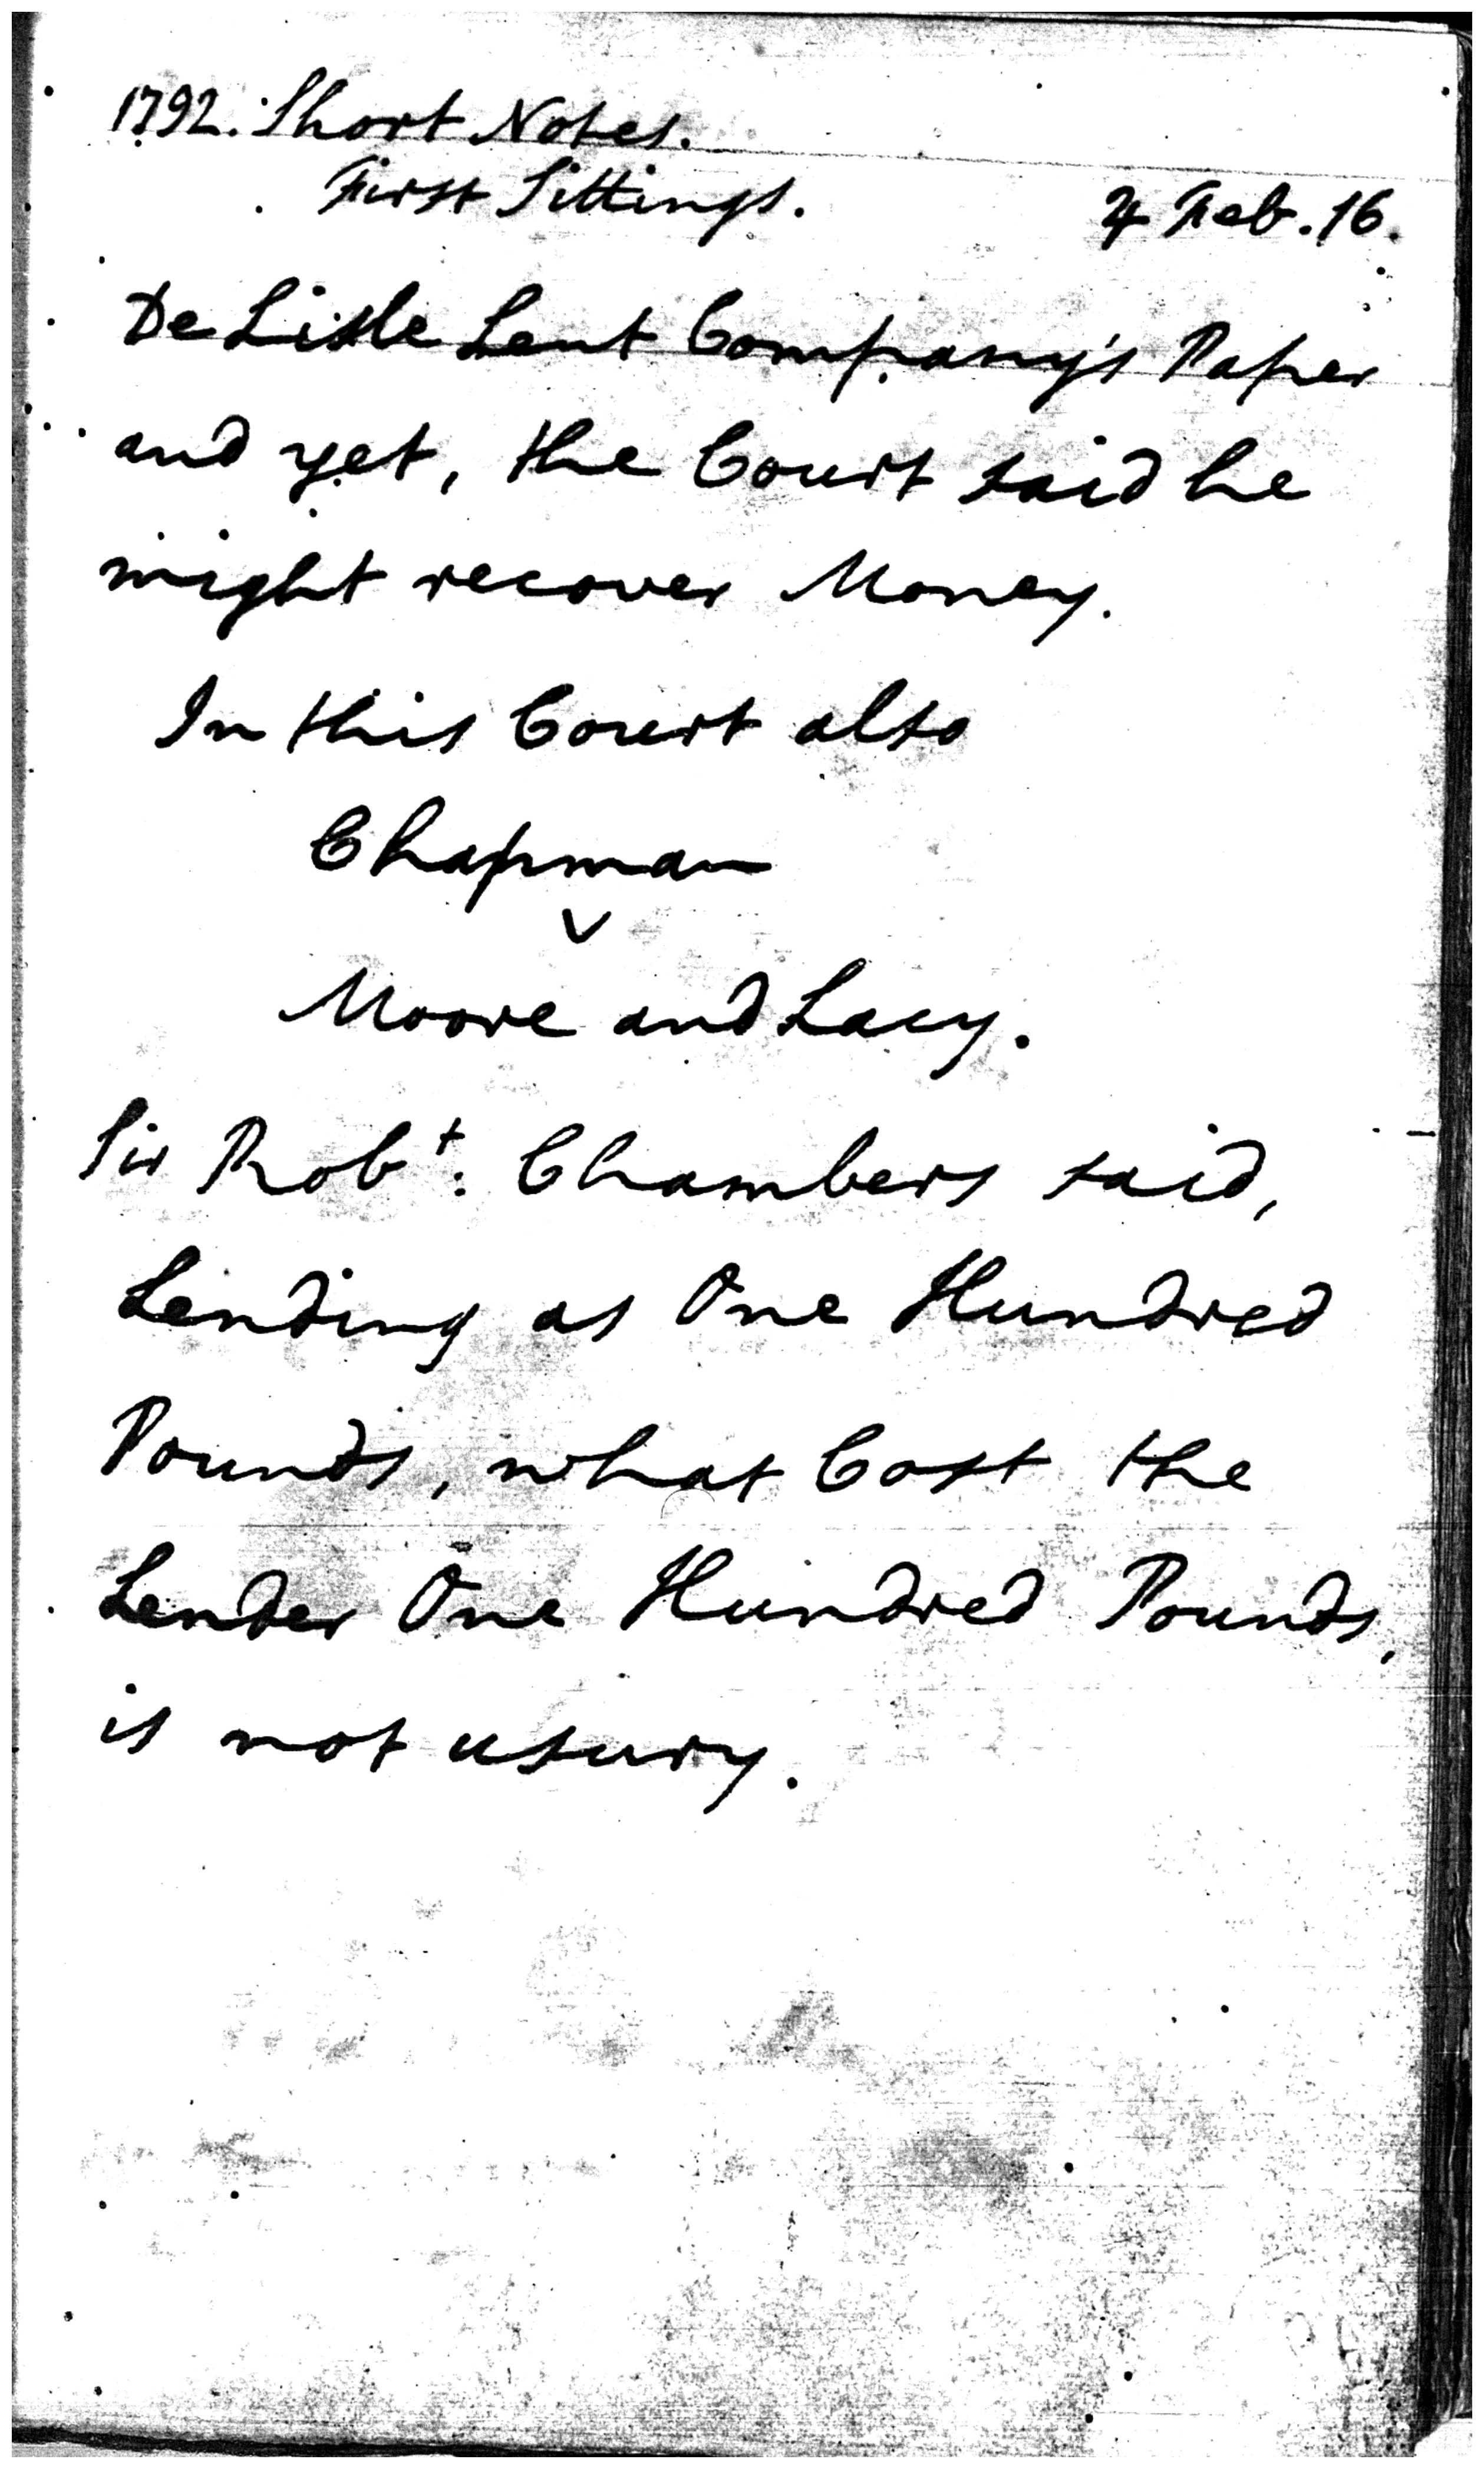 1792. Short Notes.
First Sittings. ♃ Feb. 16.
De Lisle Lent Company's Paper
and yet, the Court said he
might recover Money.
In this Court also
Chapman
v
Moore and Lacy.
Sir Robt: Chambers said,
Lending as One Hundred
Pounds, what Cost the
Lender One Hundred Pounds,
is not usury.